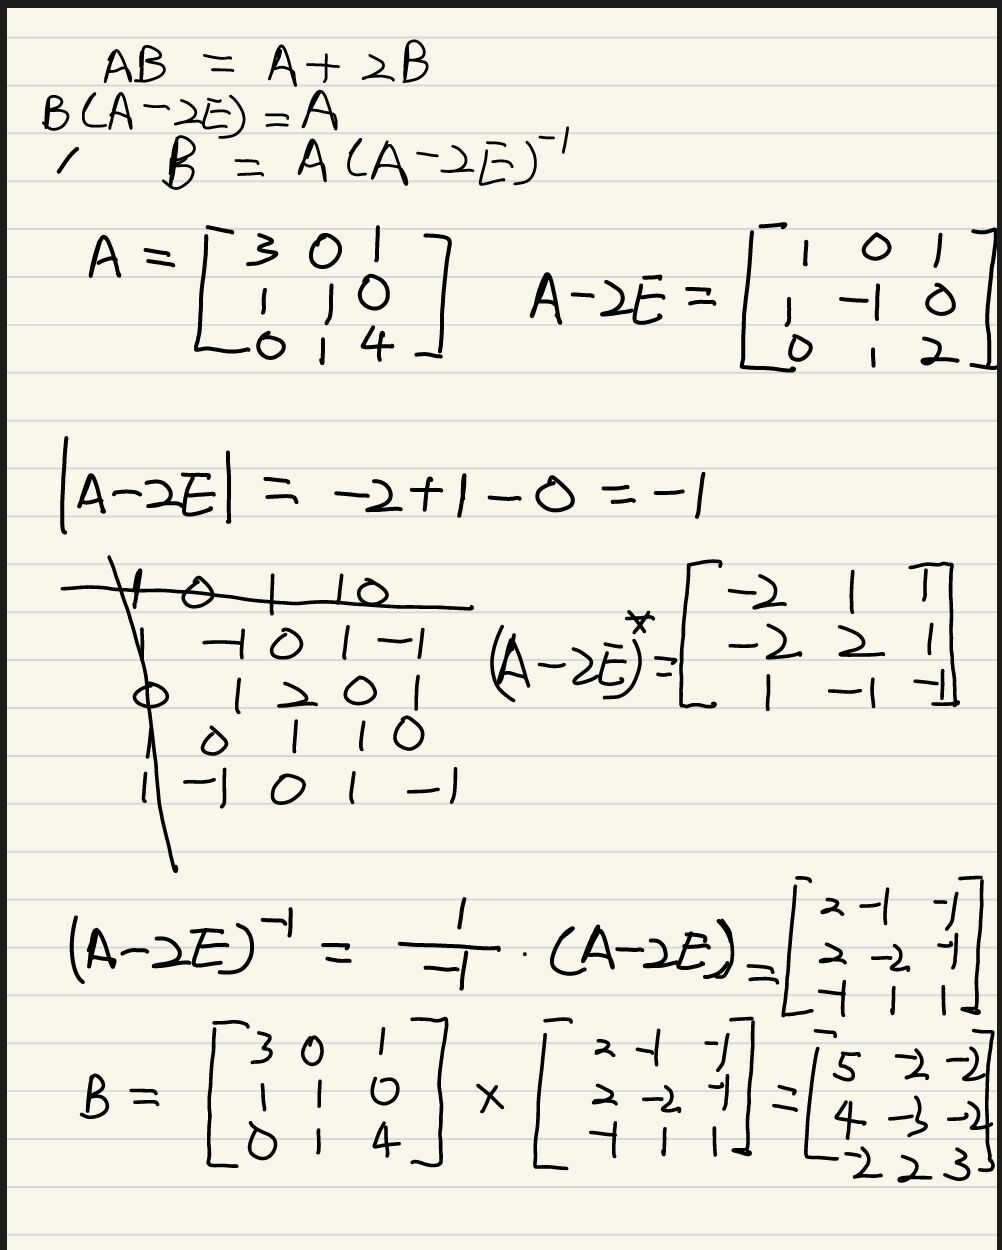 AB = A + 2B
B(A-2E) = A
B = A(A-2E)⁻¹
A = [3 0 1
1 1 0
0 1 4]
A-2E = [1 0 1
1 -1 0
0 1 2]
|A-2E| = -2+1-0 = -1
1 0 1 1 0
1 -1 0 1 -1
0 1 2 0 1
1 0 1 1 0
1 -1 0 1 -1
(A-2E)* = [-2 1 1
-2 2 1
1 -1 -1]
(A-2E)⁻¹ = 1/-1 · (A-2E) = [2 -1 -1
2 -2 -1
-1 1 1]
B = [3 0 1
1 1 0
0 1 4] × [2 -1 -1
2 -2 -1
-1 1 1] = [5 -2 -2
4 -3 -2
-2 2 3]